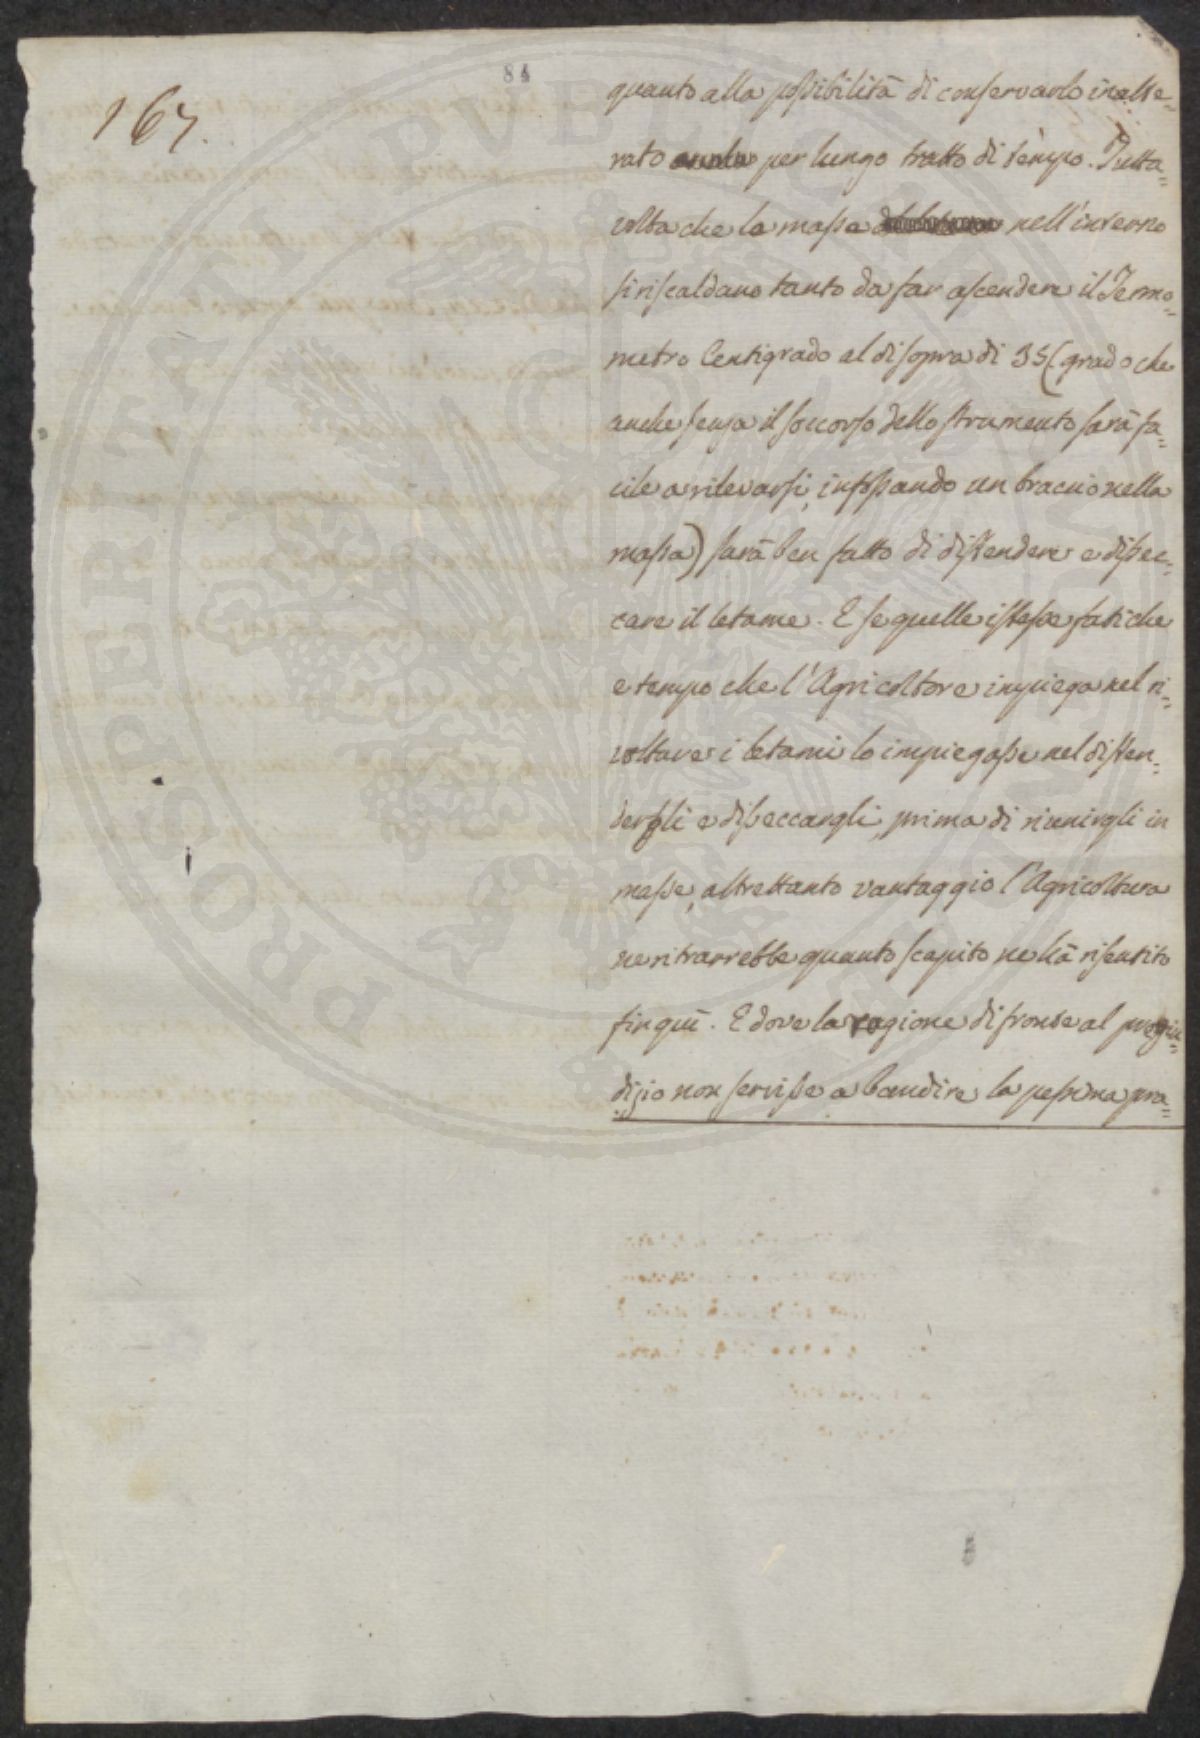 84
167.
quanto alla possibilità di conservarlo inalte=
rato per lungo tratto di tempo. Tutta=
volta che la massa nell'inverno
si riscaldano tanto da far ascendere il Termo=
metro Centigrado al disopra di 35 (grado che
anche senza il soccorso dello strumento sarà fa=
cile a rilevarsi, infossando un braccio nella
massa) sarà ben fatto di distendere e dissec=
care il letame. E se quelle istesse fatiche
e tempo che l'Agricoltore impiega nel ri=
voltare i letami lo impiegasse nel disten=
dergli e disseccargli, prima di riunirgli in
masse, altrettanto vantaggio l'Agricoltura
ne ritrarrebbe quanto scapito ne hà risentito
fin quì. E dove la ragione di fronte al pregiu=
dizio non servisse a bandire la pessima pra=
PROSPERITATI PUBLICAE